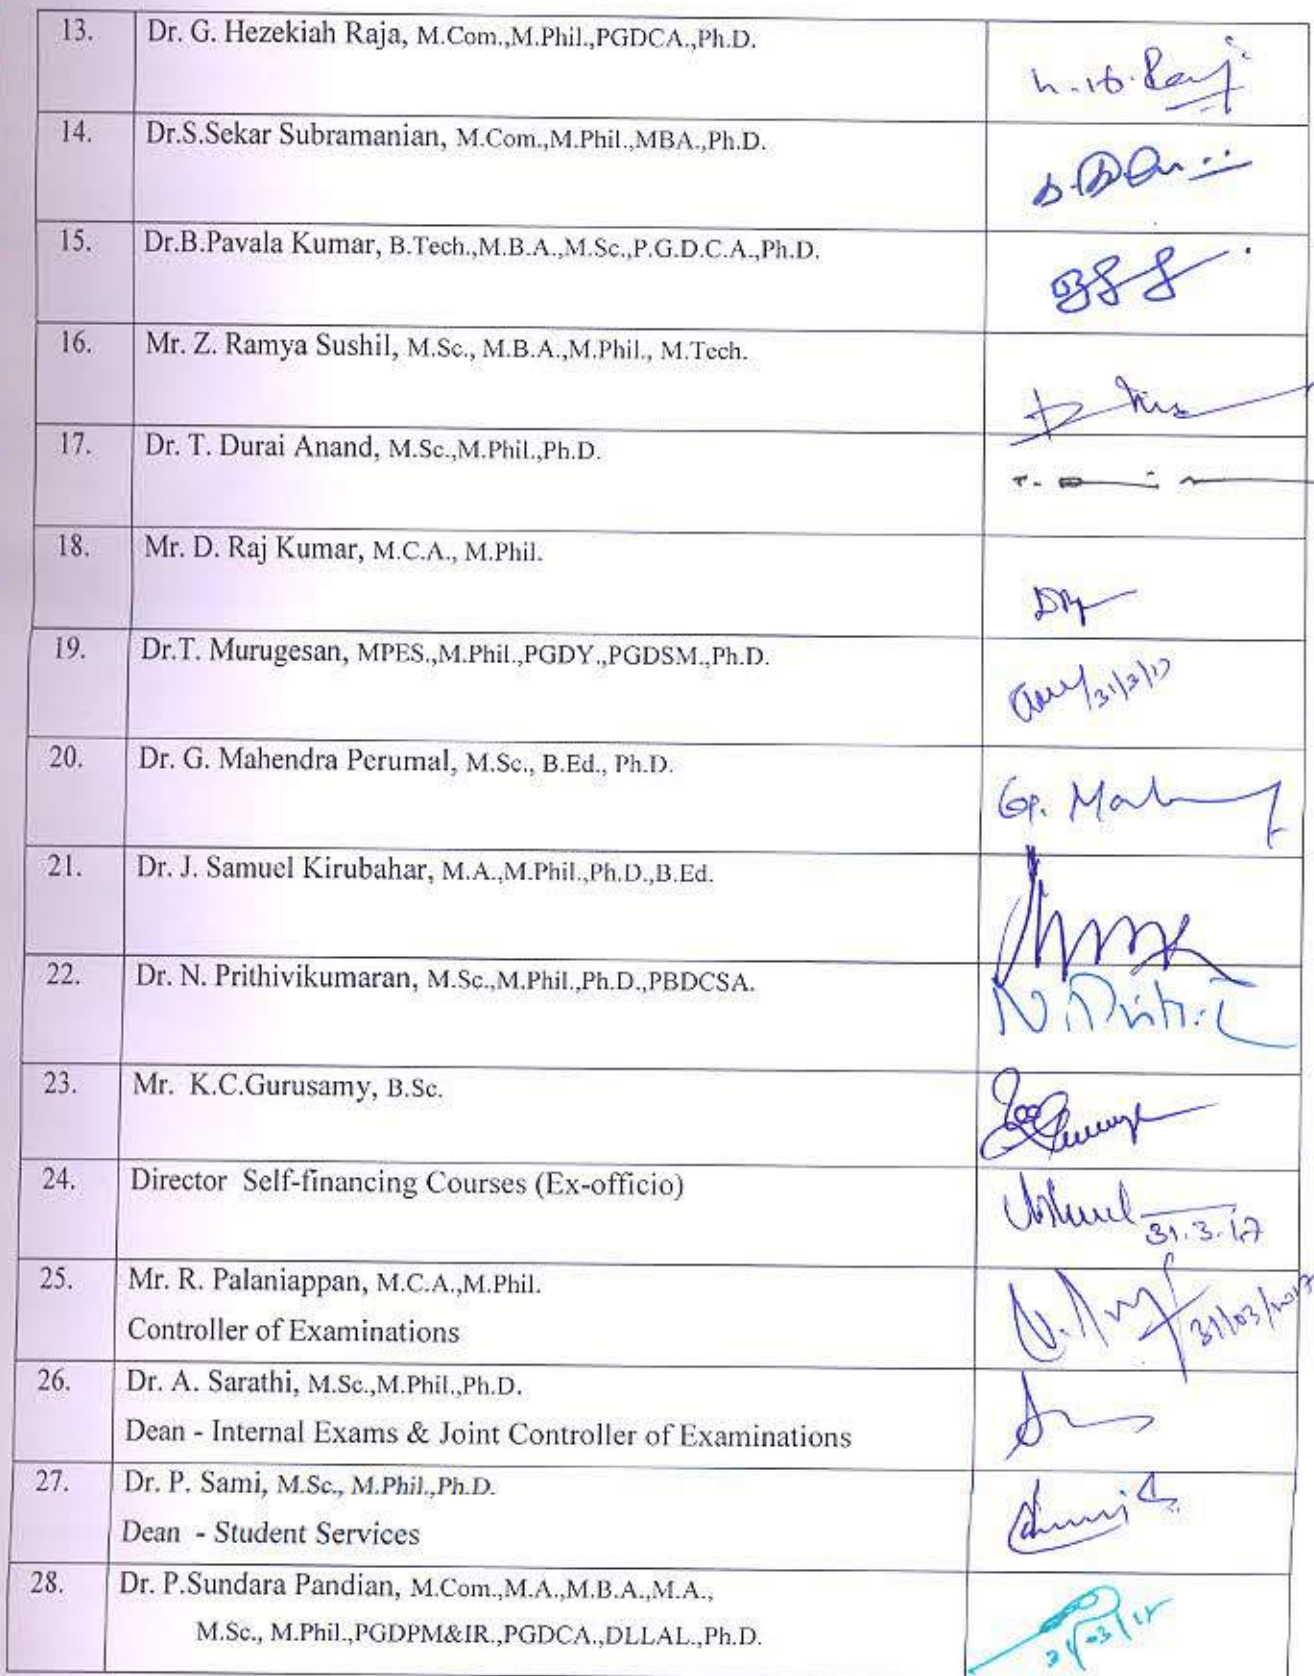 13. Dr. G. Hezekiah Raja, M.Com.,M.Phil.,PGDCA.,Ph.D.
14. Dr.S.Sekar Subramanian, M.Com.,M.Phil.,MBA.,Ph.D.
15. Dr.B.Pavala Kumar, B.Tech.,M.B.A.,M.Sc.,P.G.D.C.A.,Ph.D.
16. Mr. Z. Ramya Sushil, M.Sc., M.B.A.,M.Phil., M.Tech.
17. Dr. T. Durai Anand, M.Sc.,M.Phil.,Ph.D.
18. Mr. D. Raj Kumar, M.C.A., M.Phil.
19. Dr.T. Murugesan, MPES.,M.Phil.,PGDY.,PGDSM.,Ph.D.
31/3/17
20. Dr. G. Mahendra Perumal, M.Sc., B.Ed., Ph.D.
21. Dr. J. Samuel Kirubahar, M.A.,M.Phil.,Ph.D.,B.Ed.
22. Dr. N. Prithivikumaran, M.Sc.,M.Phil.,Ph.D.,PBDCSA.
23. Mr. K.C.Gurusamy, B.Sc.
24. Director Self-financing Courses (Ex-officio)
31.3.17
25. Mr. R. Palaniappan, M.C.A.,M.Phil.
Controller of Examinations
31/03/2017
26. Dr. A. Sarathi, M.Sc.,M.Phil.,Ph.D.
Dean - Internal Exams & Joint Controller of Examinations
27. Dr. P. Sami, M.Sc., M.Phil.,Ph.D.
Dean - Student Services
28. Dr. P.Sundara Pandian, M.Com.,M.A.,M.B.A.,M.A.,
M.Sc., M.Phil.,PGDPM&IR.,PGDCA.,DLLAL.,Ph.D.